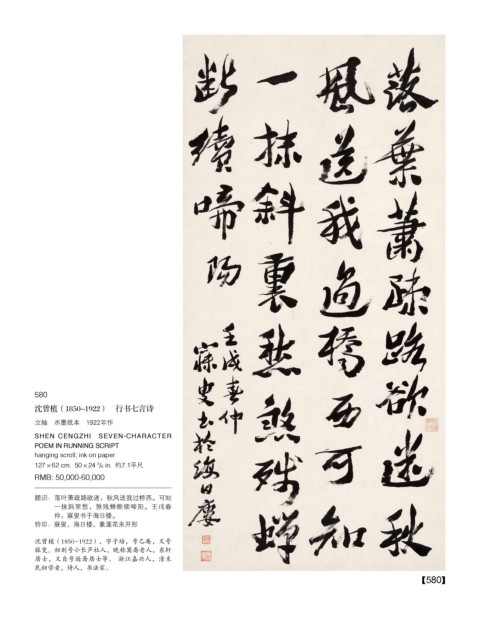 落葉蕭疎路欲迷秋
風送我過橋西可知
一抹斜裏愁煞殘蟬
斷續啼陽
壬戌春仲
寐叟書於海日廔
580
沈曾植(1850-1922) 行书七言诗
立轴 水墨纸本 1922年作
SHEN CENGZHI SEVEN-CHARACTER
POEM IN RUNNING SCRIPT
hanging scroll; ink on paper
127×62 cm. 50×24 ³/₈ in. 约7.1平尺
RMB: 50,000-60,000
题识:落叶萧疏路欲迷,秋风送我过桥西。可知
一抹斜里愁,煞残蝉断续啼阳。壬戌春
仲,寐叟书于海日楼。
钤印:寐叟、海日楼、象莲花未开形
沈曾植(1850-1922),字子培,号乙庵,又号
寐叟。初别号小长芦社人,晚称巽斋老人、东轩
居士,又自号逊斋居士等。 浙江嘉兴人,清末
民初学者,诗人,书法家。
【580】